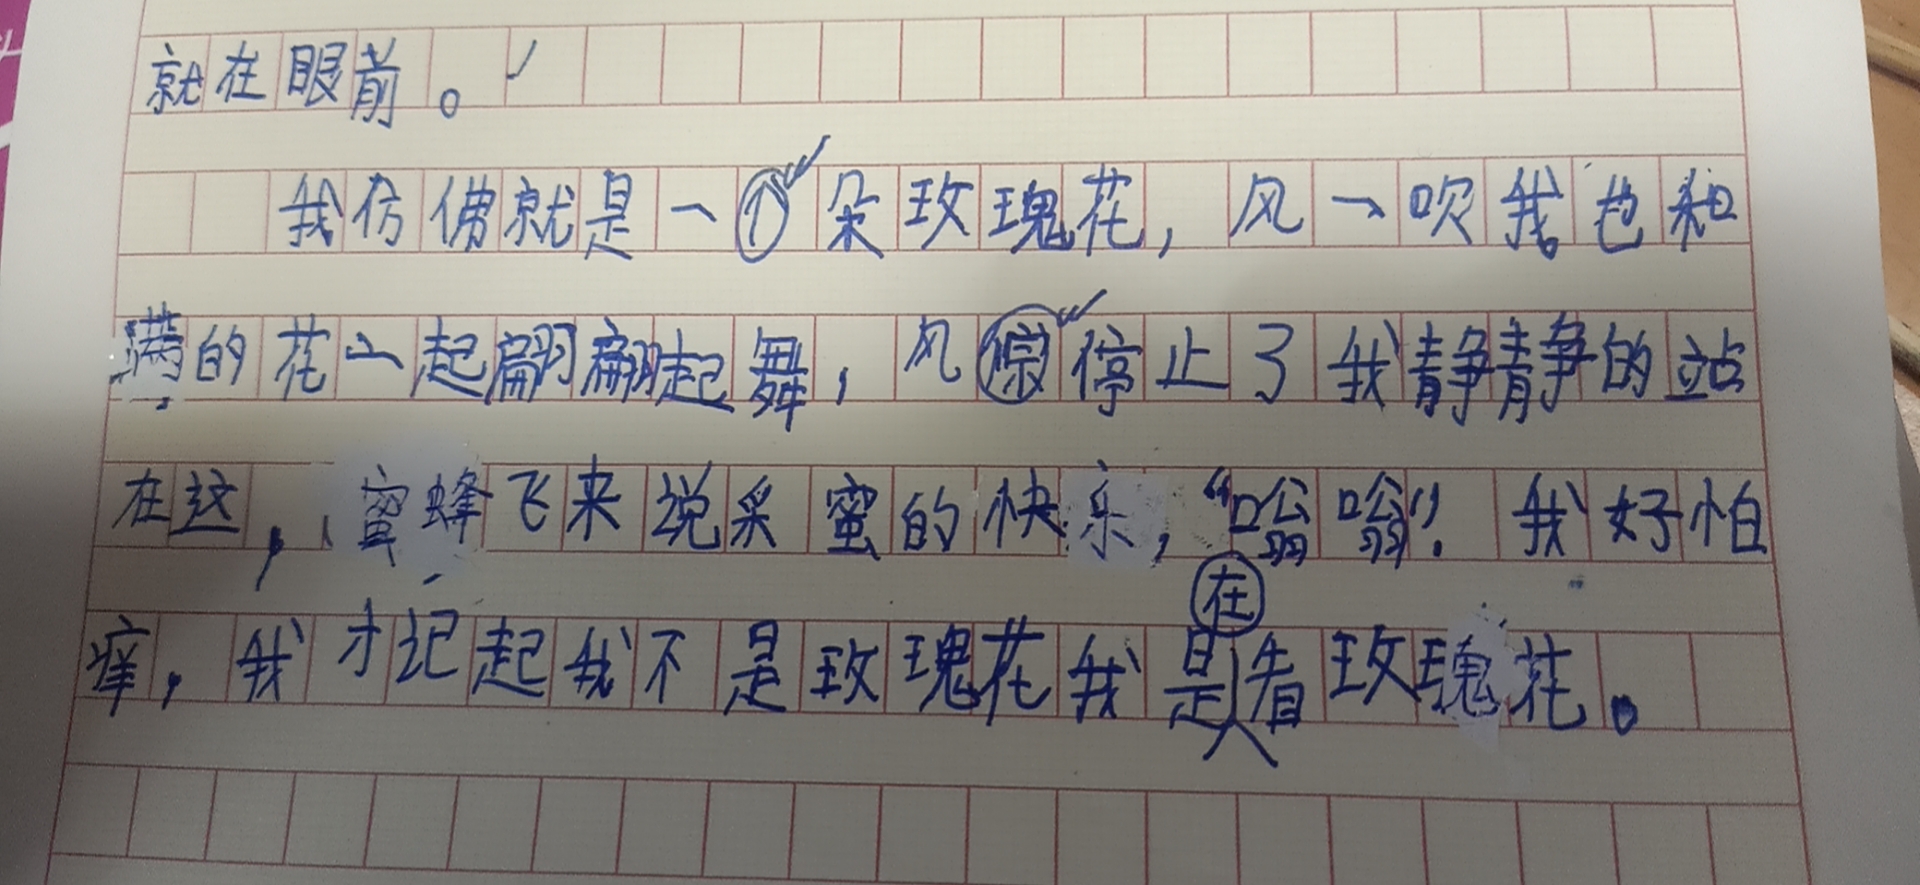 就在眼前。
我仿佛就是一个朵玫瑰花，风一吹我也和
满的花一起翩翩起舞，风停止了我静静的站
在这，蜜蜂飞来说采蜜的快乐，“嗡嗡”！我好怕
在
痒，我才记起我不是玫瑰花我是看玫瑰花。